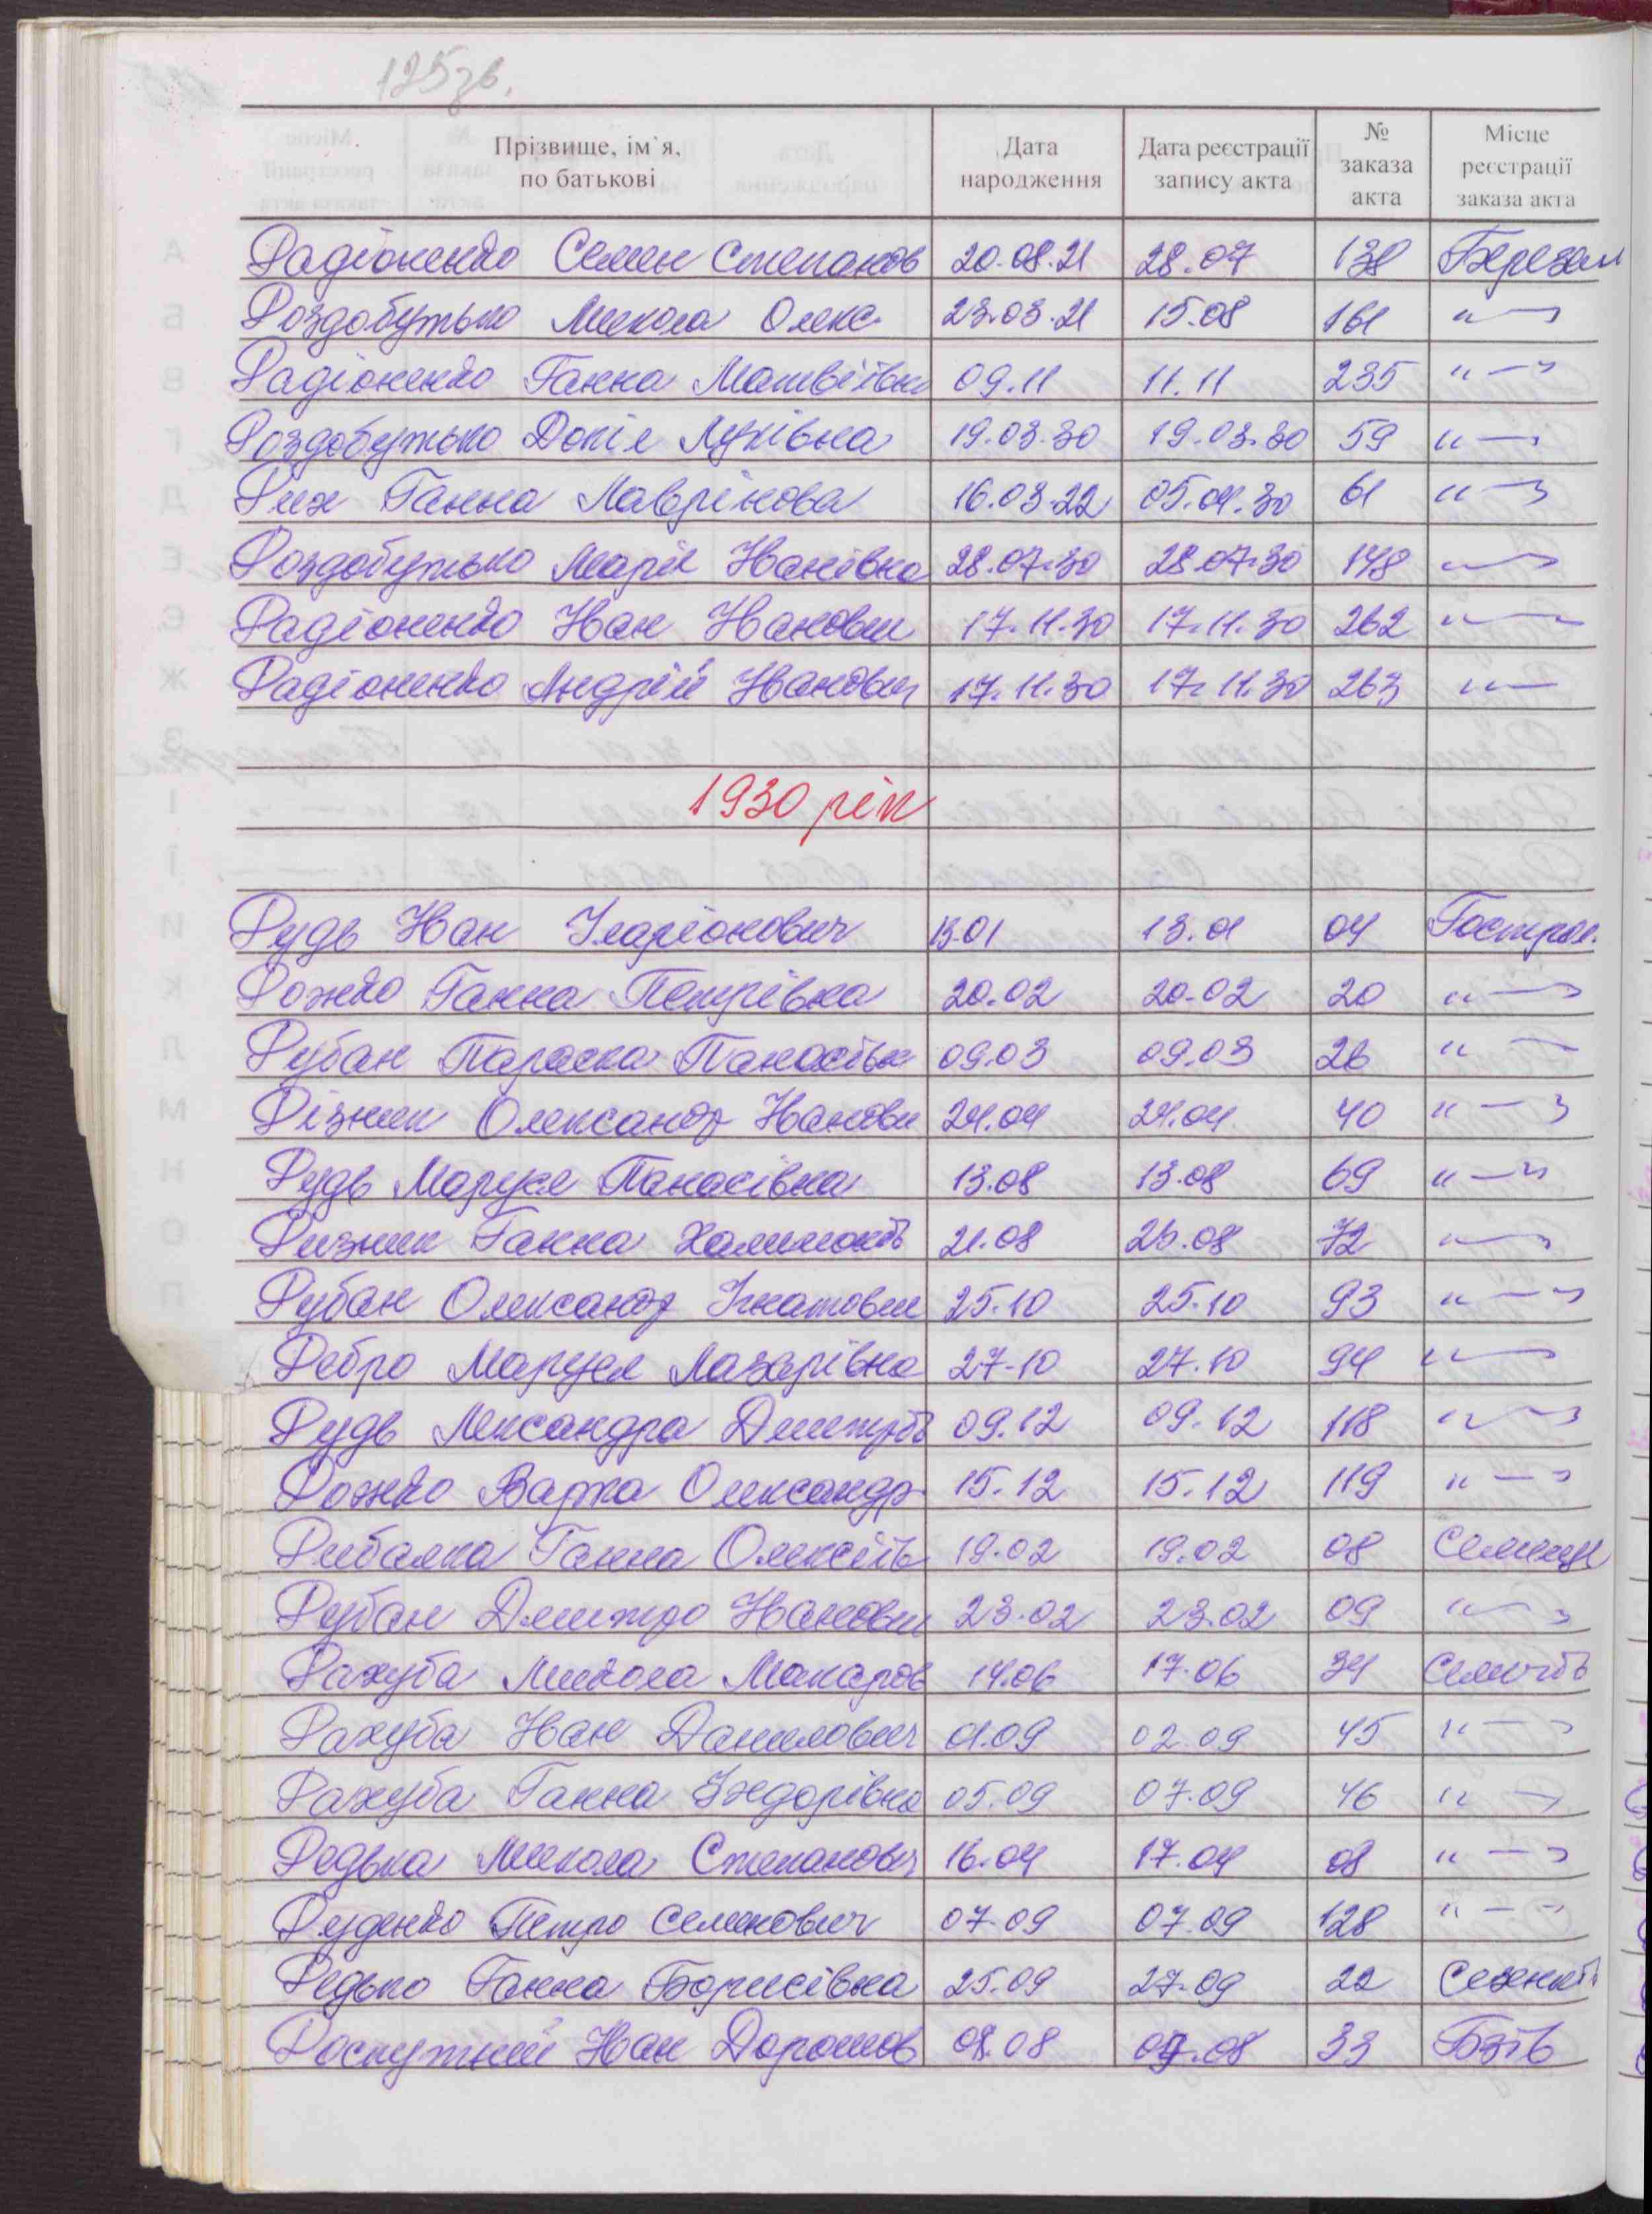 125 зв.
Прізвище, ім`я, по батькові Дата народження Дата реєстрації запису акта № заказа акта Місце реєстрації заказа акта
Радіоненко Семен Степанов 20.08.21 28.07 138 Березан
Роздобутько Микола Олекс. 23.03.21 15.08 161 " —
Радіоненко Ганна Матвіївна 09.11 11.11 235 " —
Роздобутько Докія Луківна 19.03.30 19.03.30 59 " —
Рих Ганна Лаврінова 16.03.22 05.04.30 61 " —
Роздобутько Марія Іванівна 28.07.30 28.07.30 148 " —
Радіоненко Іван Іванович 17.11.30 17.11.30 262 " —
Радіоненко Андрій Іванович 17.11.30 17.11.30 263 " —
1930 рік
Рудь Іван Іларіонович 13.01 13.01 04 Гострол.
Рожко Ганна Петрівна 20.02 20.02 20 " —
Рубан Параска Панасівн 09.03 09.03 26 " —
Різник Олександр Іванови 24.04 24.04 40 " —
Рудь Маруся Панасівна 13.08 13.08 69 " —
Ризник Ганна 21.08 72 " —
Рубан Олександр Ігнатович 25.10 25.10 93 " —
Ребро Маруся Лазарівна 27.10 27.10 94 " —
Рудь Лександра Дмитрів 09.12 09.12 118 " —
Рожко Варка Олександр 15.12 15.12 119 " —
Рибалка Ганна Олексіїв 19.02 19.02 08 Семенів
Рубан Дмитро Іванович 23.02 23.02 09 " —
Рахуба Микола Макаров 14.06 17.06 34
Рахуба Іван Данилович 01.09 02.09 45 " —
Рахуба Ганна Хведорівна 05.09 07.09 46 " —
Редька Микола Степанович 16.04 17.04 08 " —
Руденко Петро Семенович 07.09 07.09 128 " —
Редько Ганна Борисівна 25.09 27.09 22
Роспутній Іван Дорошов 08.08 09.08 33 Бзів